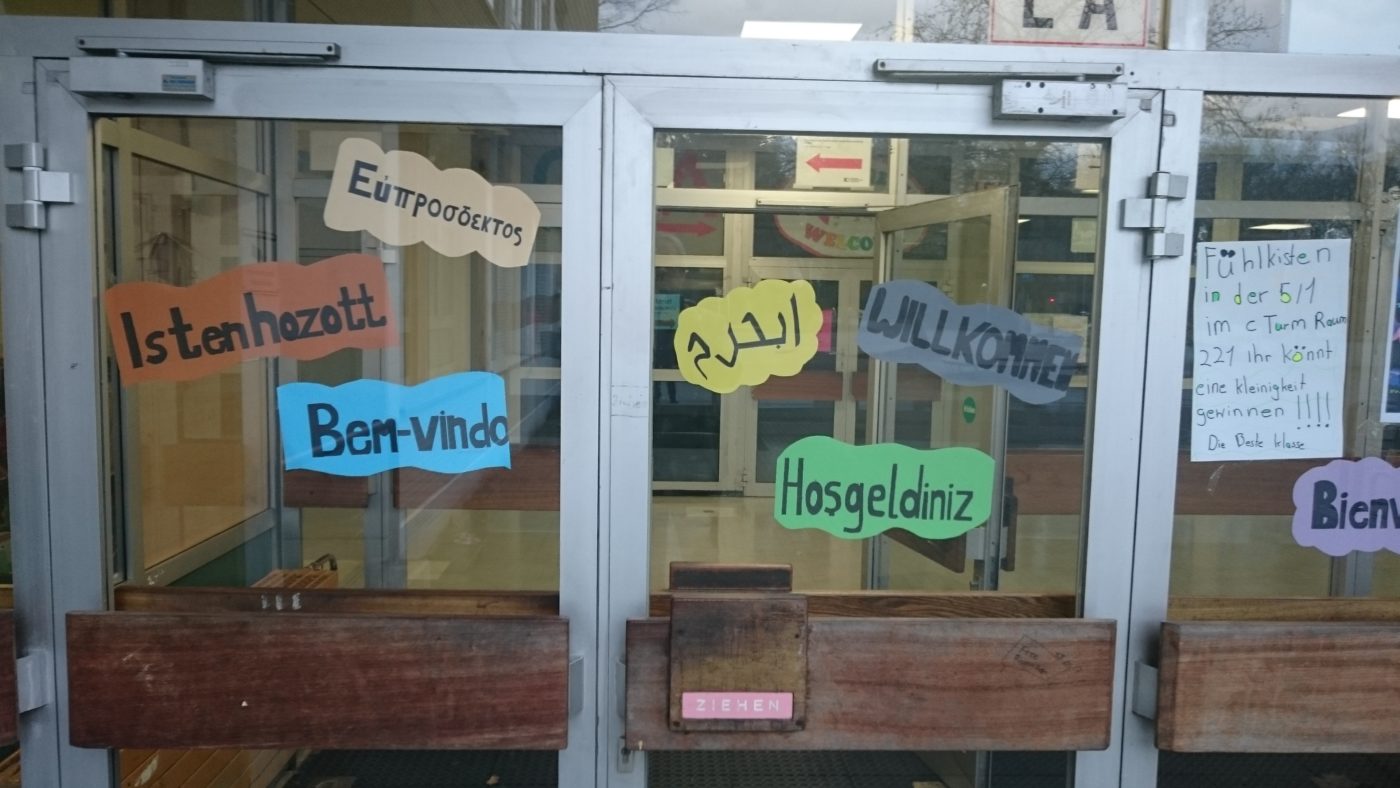 L A
Εύπροσδεκτος
WELCO
Istenhozott
WILLKOMMEN
Bem-vindo
Hoşgeldiniz
Fühlkisten
in der 5/1
im c Turm Raum
221 ihr könnt
eine kleinigkeit
gewinnen !!!!
Die Beste klasse
Bienv
ZIEHEN